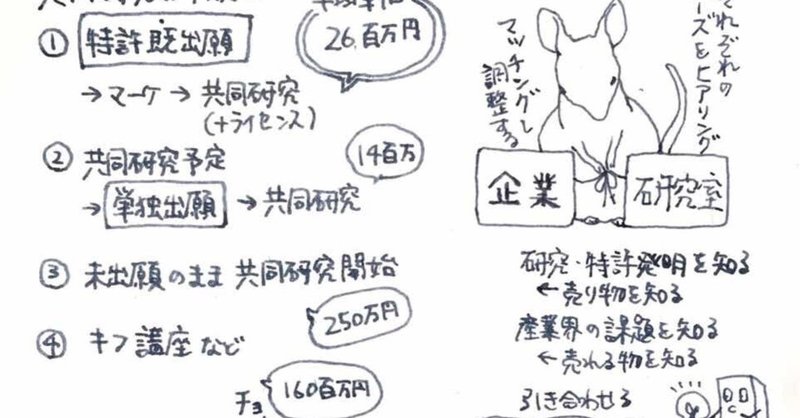 ① 特許既出願
26.百万円
→マーケ→共同研究
(+ライセンス)
② 共同研究予定
14百万
→単独出願→共同研究
③ 未出願のまま共同研究開始
250万円
④ キフ講座など
160百万円
チョ
ーズをヒアリング
マッチングし
調整する
企業
研究室
研究・特許発明を知る
←売り物を知る
産業界の課題を知る
←売れる物を知る
引き合わせる